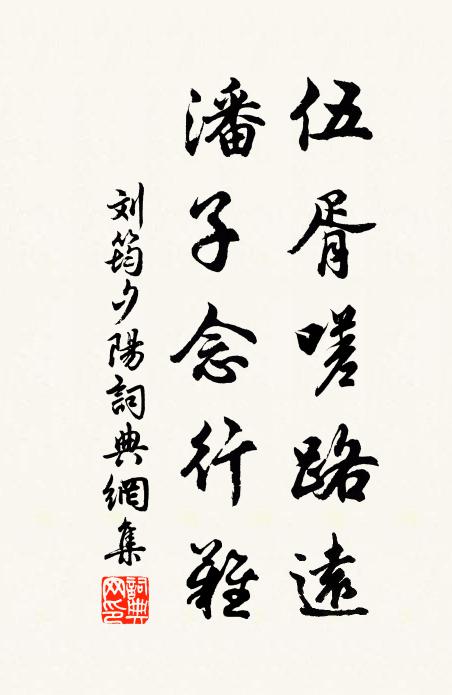 伍胥嗟路遠
潘子念行難
刘筠夕陽詞典網集
詞典網印